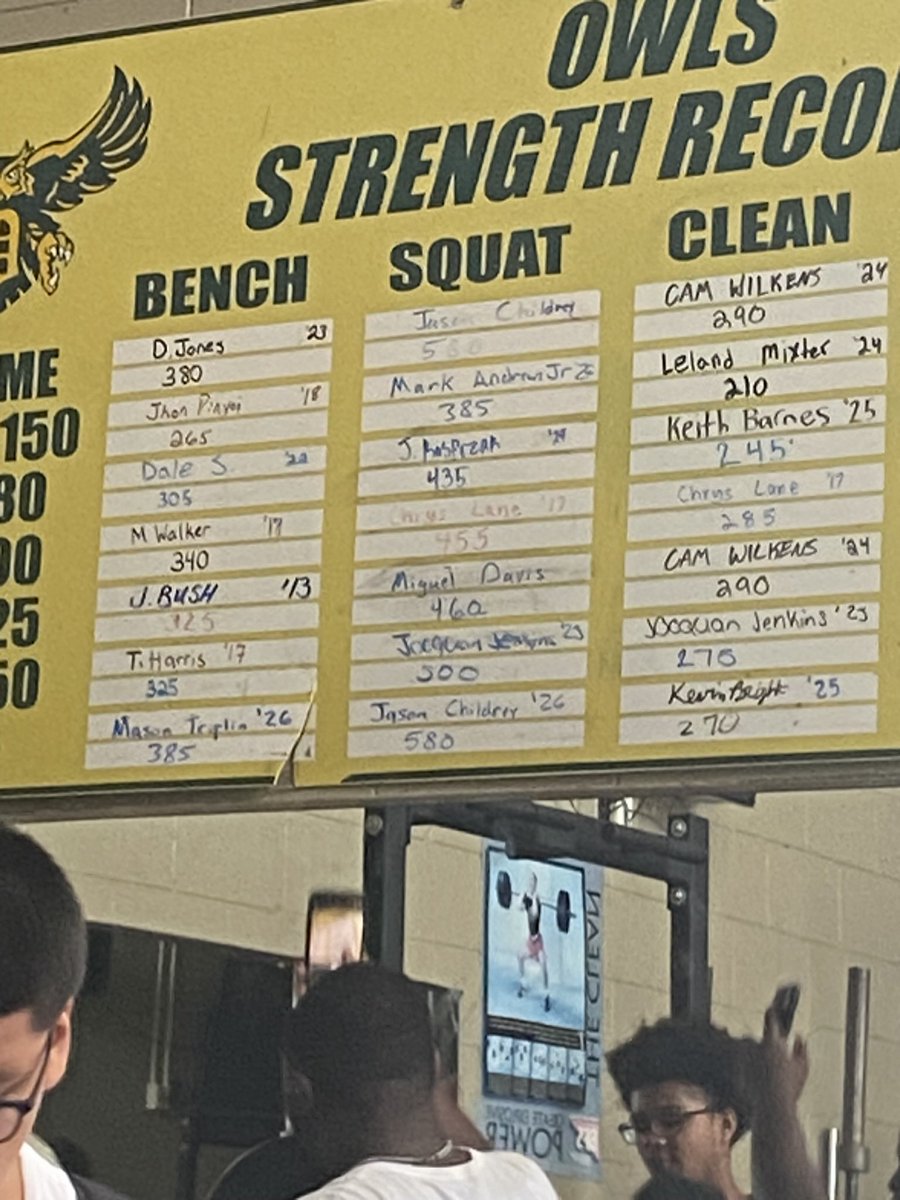 OWLS
STRENGTH RECO
BENCH SQUAT CLEAN
D. Jones 23 Jason Childrey CAM WILKENS '24
380 580 290
ME
Mark Andrew Jr 26 Leland Mixter '24
385 210
Jhon '18
265
150
J. Keith Barnes '25
435 245
Dale S. '22
305
80
Chrys Lane '17 Chrys Lane '17
455 285
M Walker '17
340
90
Miguel Davis CAM WILKENS '24
460 290
J. BUSH '13
325
25
Jocquan Jenkins '23 Jocquan Jenkins '23
500 275
T. Harris '17
325
50
Jason Childrey '26 Kevin Bright '25
580 270
Mason '26
385
THE CLEAN
POWER